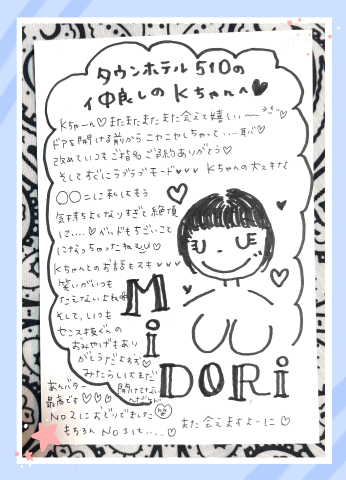 タウンホテル510の
仲良しのKちゃんへ♥
Kちゃーん♡またまたまたまた会えて嬉しい〜
ドアを開ける前からニヤニヤしちゃって....恥♡
改めていつもご指名ご予約ありがとう♡
そしてすぐにラブラブモード♥♥♥ Kちゃんの大スキな
〇〇〇に私はもう
気持ちよくなりすぎて絶頂
に....♡ベッドもすごいこと
になっちゃったねwω♡
Kちゃんとのお話もスキ♥♥♥
笑いがいつも
たえないよね
そして、いつも
センス抜ぐんの
おみやげもあり
がとうだよぉぉ♡
みたらしはまだ
あんバター
最高です♡♡♡
No2におどりでました
もちろん No1は.....♡
また会えますよーに♡
MiDORi